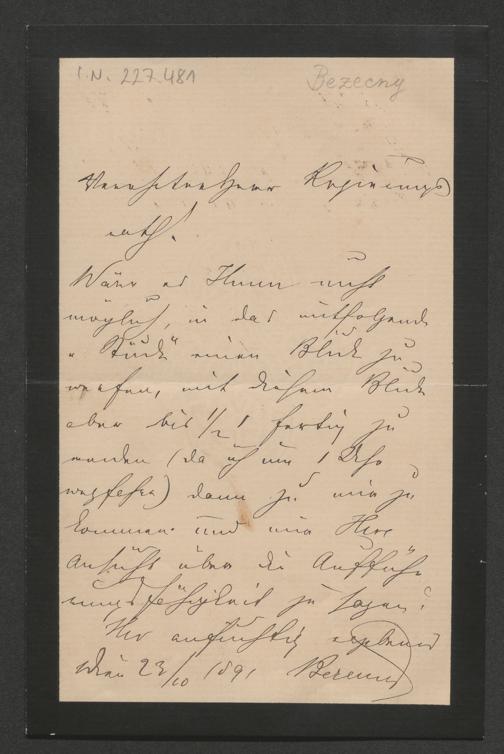 I.N. 227.481
Bezecny
Verehrter Herr Regierungs
rath!
Wäre es Ihnen nicht
möglich, in das mitfolgende
„Stück“ einen Blick zu
werfen, mit diesem Blick
aber bis ½ 1 fertig zu
werden (da ich um 1 Uhr
weggehe) dann zu mir zu
kommen und mir Ihre
Ansicht über die Auffüh
rungsfähigkeit zu sagen?
Ihr aufrichtig ergebener
Wien 23/10 1891 Bezecny